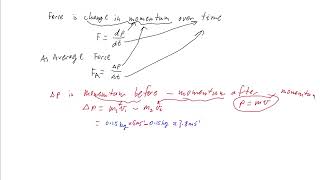 Force is change in momentum over time
F = dp/dt
As Average Force
F_A = Δp/Δt
Δp is momentum before - momentum after - momentum
p = mv
Δp = m₁v₁ - m₂v₂
= 0.15kg